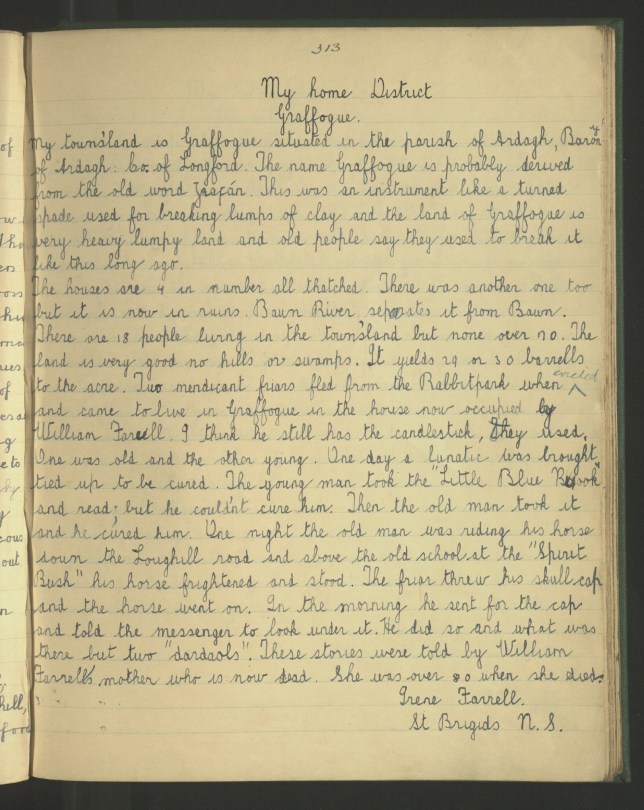 313
My home District
Graffogue.
My towns'land is Graffogue situated in the parish of Ardagh, Barony
of Ardagh. Co. of Longford. The name Graffogue is probably derived
from the old word
This was an instrument like a turned
spade used for breaking lumps of clay and the land of Graffogue is
very heavy lumpy land and old people say they used to break it
like this long ago.
The houses are 4 in number all thatched. There was another one too
but it is now in ruins. Baun River separates it from Bawn.
There are 18 people living in the towns'land but none over 70. The
land is very good no hills or swamps. It yields 29 or 30 barrells
to the acre. Two mendicant friars fled from the Rabbitpark when evicted
and came to live in Graffogue in the house now occupied by
William Farrell. I think he still has the candlestick, they used.
One was old and the other young. One day a lunatic was brought
tied up to be cured. The young man took the "Little Blue Book"
and read; but he could'nt cure him. Then the old man took it
and he cured him. One night the old man was riding his horse
down the Loughill road and above the old school at the "Spirit
Bush" his horse frightened and stood. The friar threw his skull cap
and the horse went on. In the morning he sent for the cap
and told the messenger to look under it. He did so and what was
there but two "dardaols". These stories were told by William
Farrell's mother who is now dead. She was over 80 when she died.
Irene Farrell.
St Brigids N. S.